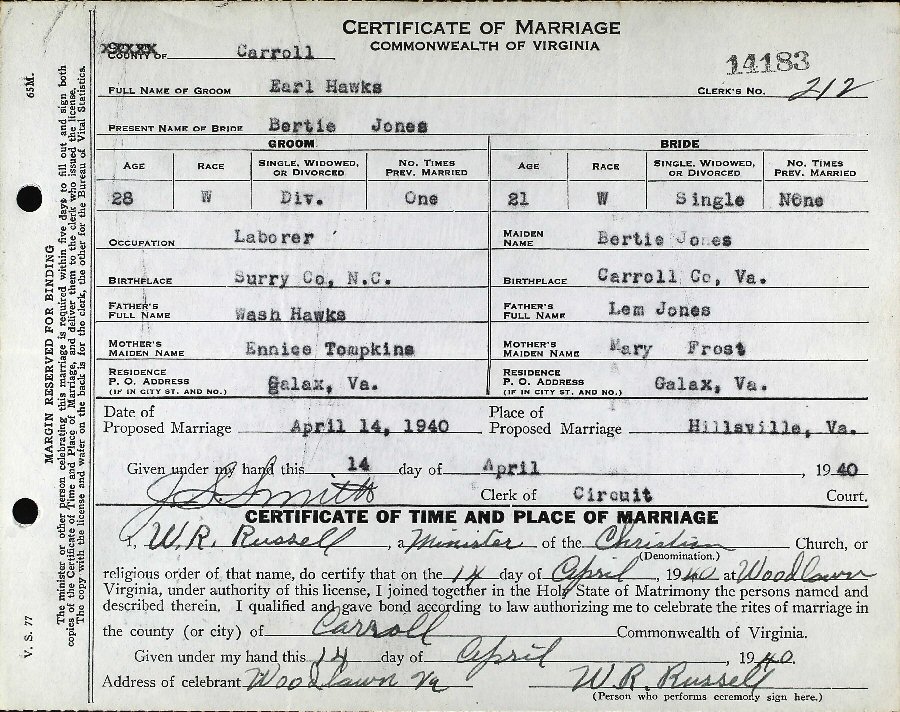 CERTIFICATE OF MARRIAGE
COMMONWEALTH OF VIRGINIA
COUNTY OF Carroll
14183
FULL NAME OF GROOM Earl Hawks CLERK'S NO. 212
PRESENT NAME OF BRIDE Bertie Jones
GROOM BRIDE
AGE RACE SINGLE, WIDOWED, OR DIVORCED NO. TIMES PREV. MARRIED AGE RACE SINGLE, WIDOWED, OR DIVORCED NO. TIMES PREV. MARRIED
28 W Div. One 21 W Single N6ne
OCCUPATION Laborer MAIDEN NAME Bertie Jones
BIRTHPLACE Surry Co, N.C. BIRTHPLACE Carroll Co, Va.
FATHER'S FULL NAME Wash Hawks FATHER'S FULL NAME Lem Jones
MOTHER'S MAIDEN NAME Ennice Tompkins MOTHER'S MAIDEN NAME Mary Frost
RESIDENCE P. O. ADDRESS (IF IN CITY ST. AND NO.) Galax, Va. RESIDENCE P. O. ADDRESS (IF IN CITY ST. AND NO.) Galax, Va.
Date of Proposed Marriage April 14, 1940 Place of Proposed Marriage Hillsville, Va.
Given under my hand this 14 day of April, 1940
J. S. Smith Clerk of Circuit Court.
CERTIFICATE OF TIME AND PLACE OF MARRIAGE
I, W. R. Russell, a Minister of the Christian Church, or
(Denomination.)
religious order of that name, do certify that on the 14 day of April, 1940 at Woodlawn
Virginia, under authority of this license, I joined together in the Holy State of Matrimony the persons named and
described therein. I qualified and gave bond according to law authorizing me to celebrate the rites of marriage in
the county (or city) of Carroll Commonwealth of Virginia.
Given under my hand this 14 day of April, 1940.
Address of celebrant Woodlawn Va W. R. Russell
(Person who performs ceremony sign here.)
65M.
MARGIN RESERVED FOR BINDING
The minister or other person celebrating this marriage is required within five days to fill out and sign both
copies of the Certificate of Time and Place of Marriage, and deliver them to the clerk who issued the license.
The copy with the license and wafer on the back is for the clerk, the other for the Bureau of Vital Statistics.
V. S. 77